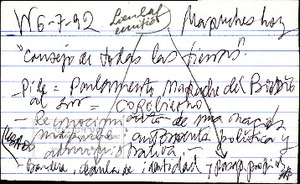 W 6-7-92
Mapuches hoy
"Consejo de todas las tierras".
- Pide = Parlamento Mapuche del Biobío
al sur = Cogobierno
- Reconocimiento de una nación
mapuche: autonomía política y
administrativa. -
- Bandera, cédula de identidad y pasap. propios